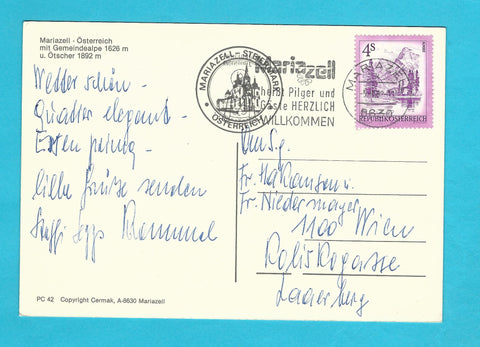 Mariazell - Österreich
mit Gemeindealpe 1626 m
u. Ötscher 1892 m
Wetter schön -
Quartier elegant -
Essen
liebe Grüße senden
Steffi Sepp
PC 42 Copyright Cermak, A-8630 Mariazell
MARIAZELL - STEIERMARK
ÖSTERREICH
Mariazell
heißt Pilger und
Gäste HERZLICH
WILLKOMMEN
MARIAZELL
8630
4S
REPUBLIK ÖSTERREICH
Fr.
Fr. Niedermayer
1100 Wien
Laaerberg